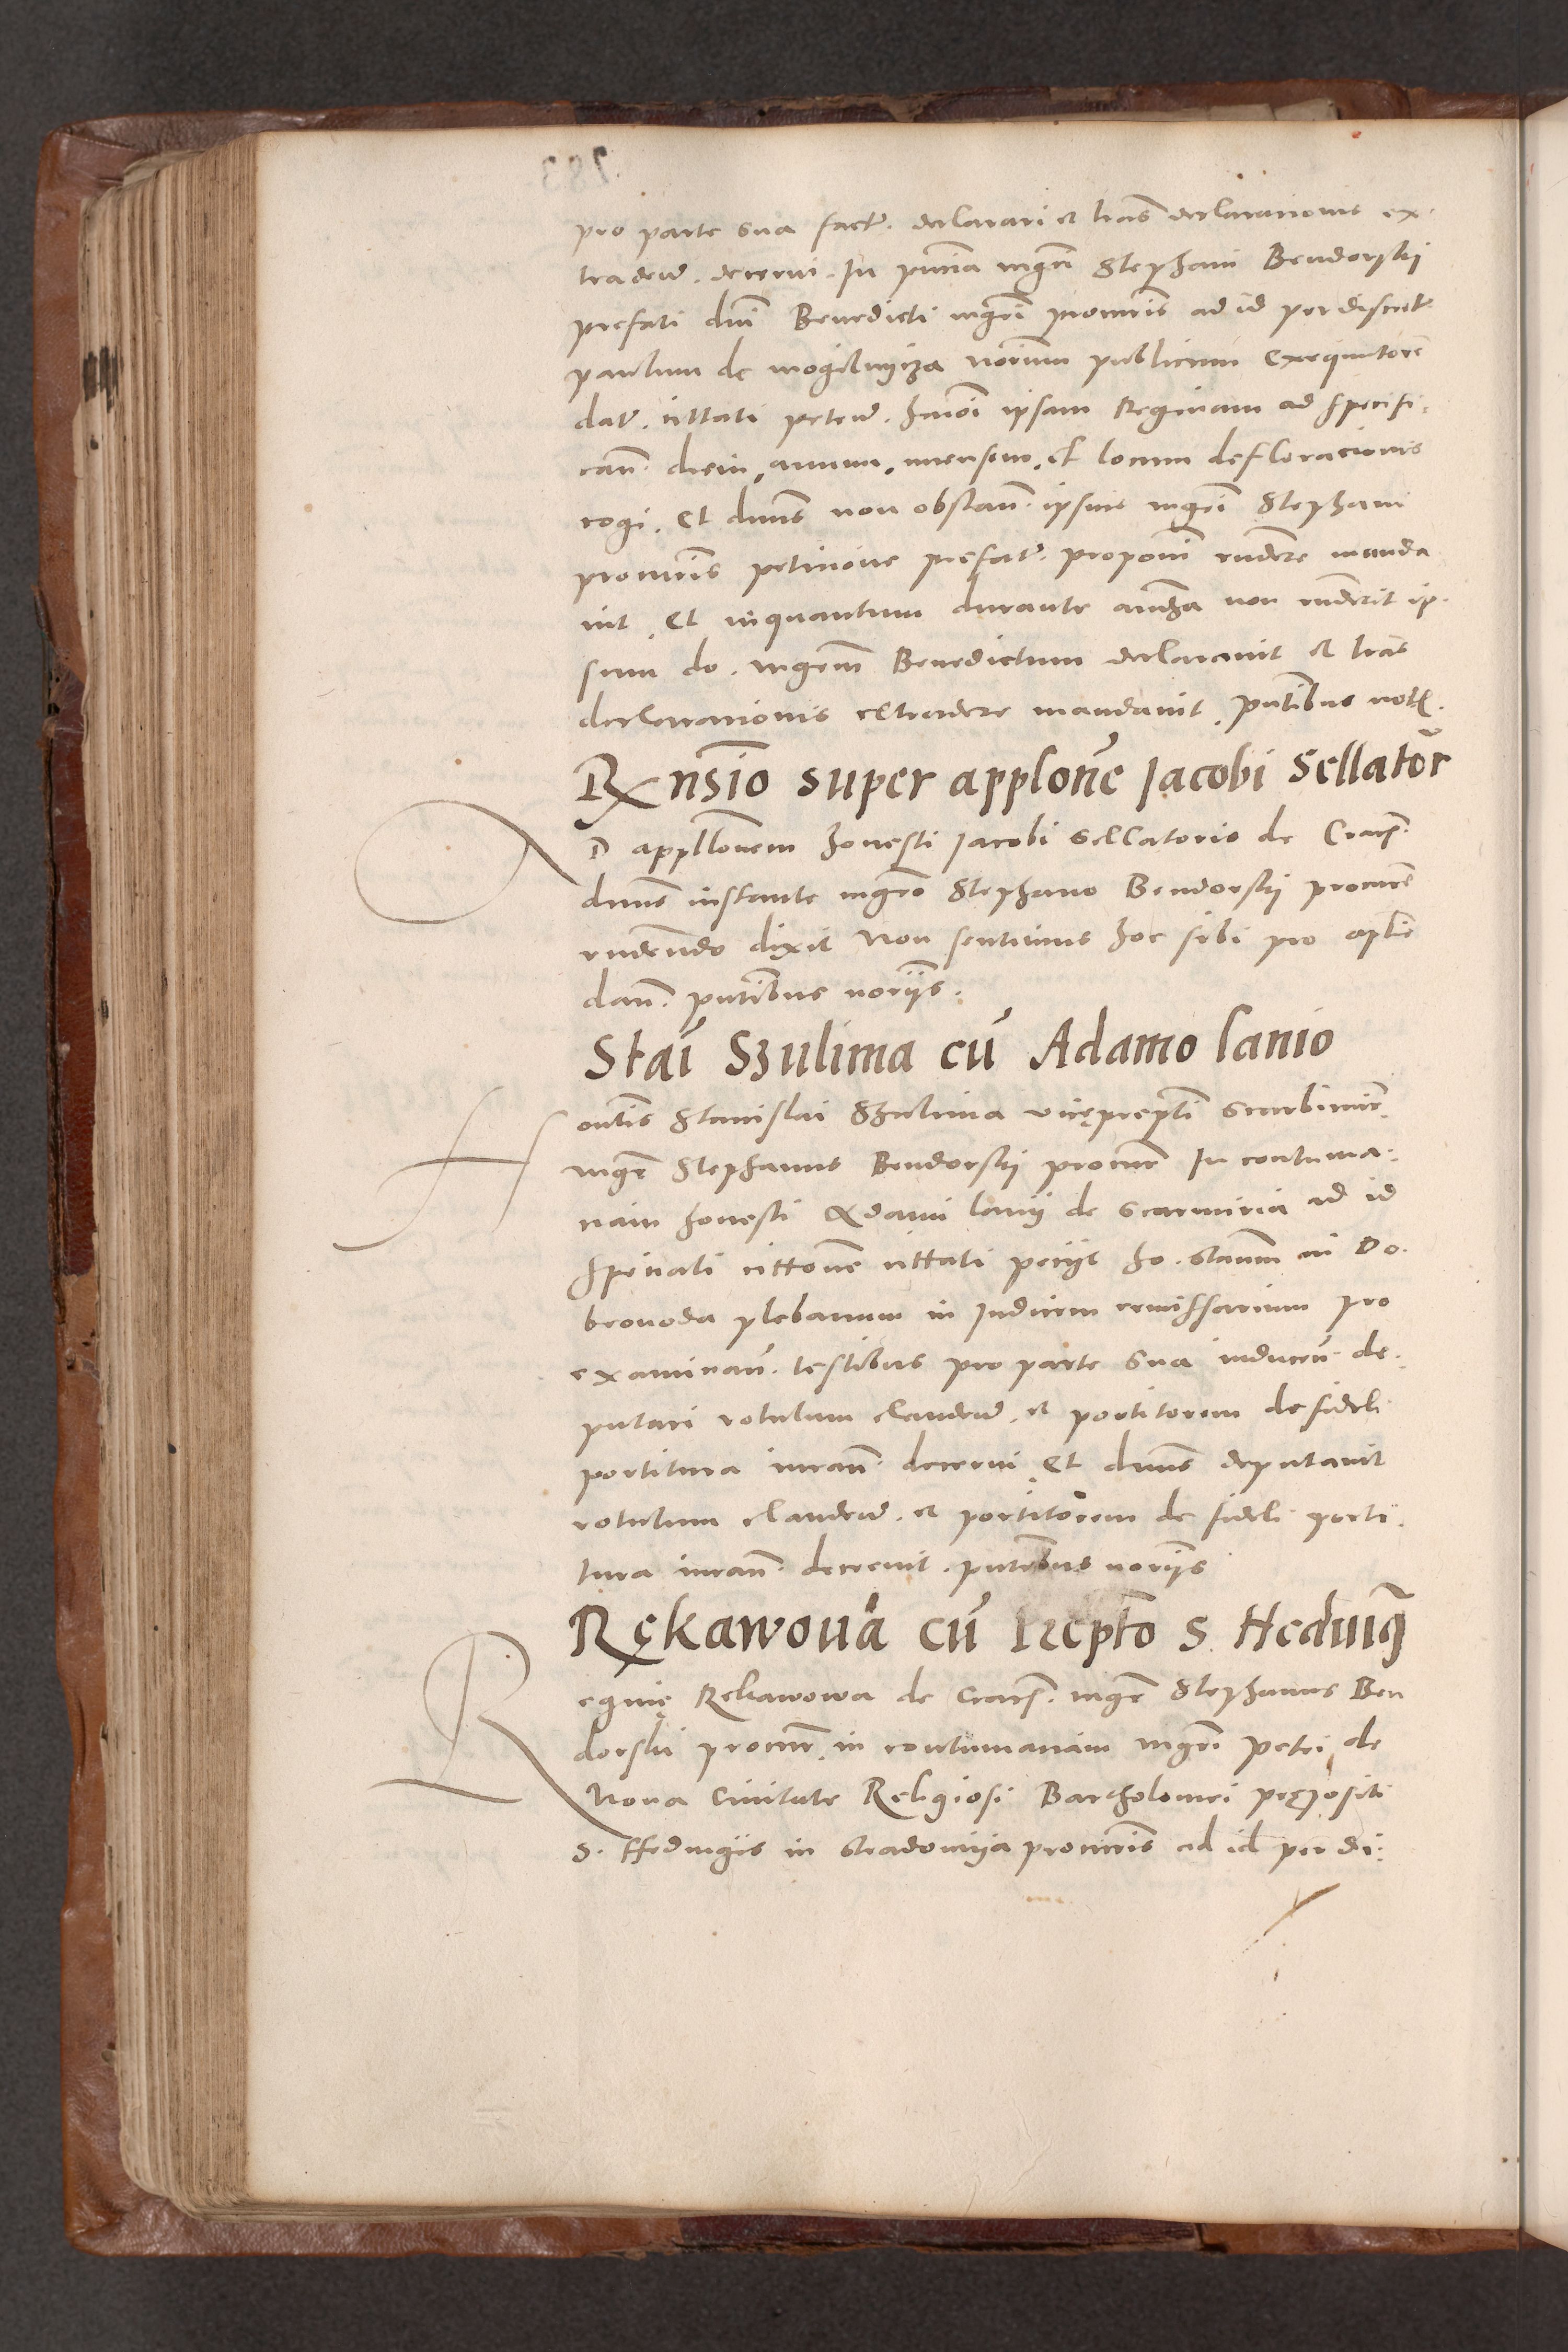 pro parte sua fact. declarari et lras declarationis ex-
tradend. decerni. In pntia mgri Stephani Bendorskij
prefati dni Benedicti mgri procuris ad id per discret.
paulum de mogilnijcza norium publicum Exequutore
dat. cittati petend. hmoi ipsam Reginam ad specifi-
cand. diem, annum, mensem, et locum deflorationis
cogi. Et dnus non obstan. ipsius mgri Stephani
procuris petitione prefat. proponi rndere manda
uit. Et inquantum durante audza non rnderit ip-
sum do. mgrum Benedictum declarauit et lras
declarationis extradere mandauit. pntibus not.
Rxnsio super applone Jacobi Sellator
D appllonem honesti Jacobi Sellatoris de Crac.
dnus instante mgro Stephano Bendorskij procure
rndendo dixit Non sentimus hoc sibi pro aplis
dan. pntibus norijs.
Stai Szulima cu Adamo lanio
ontis Stanislai Szulima viceprepti Scarbimir.
mgr Stephanus Bendorskij procur In contuma-
ciam honesti Adami lanij de Scarmiria ad id
speciali cittone cittati petijt ho. Stanm in Do-
browoda plebanum in Judicem remissarium pro
examinan. testibus pro parte sua inducen. de-
putari rotulum claudend. et portitorem de fideli
portitura iuran. decerni. Et dnus deputauit
rotulum claudend. et portitorem de fideli porti-
tura iuran. decreuit. pntibus norijs
Rękawoua cu prepto S. Heduig
eginę Rekawowa de Crac. mgr Stephanus Ben
dorski procur. in contumaciam mgri Petri de
Noua Ciuitate Religiosi Bartholomei prępositi
S. Hedwigis in Stradomija procuris ad id per di-